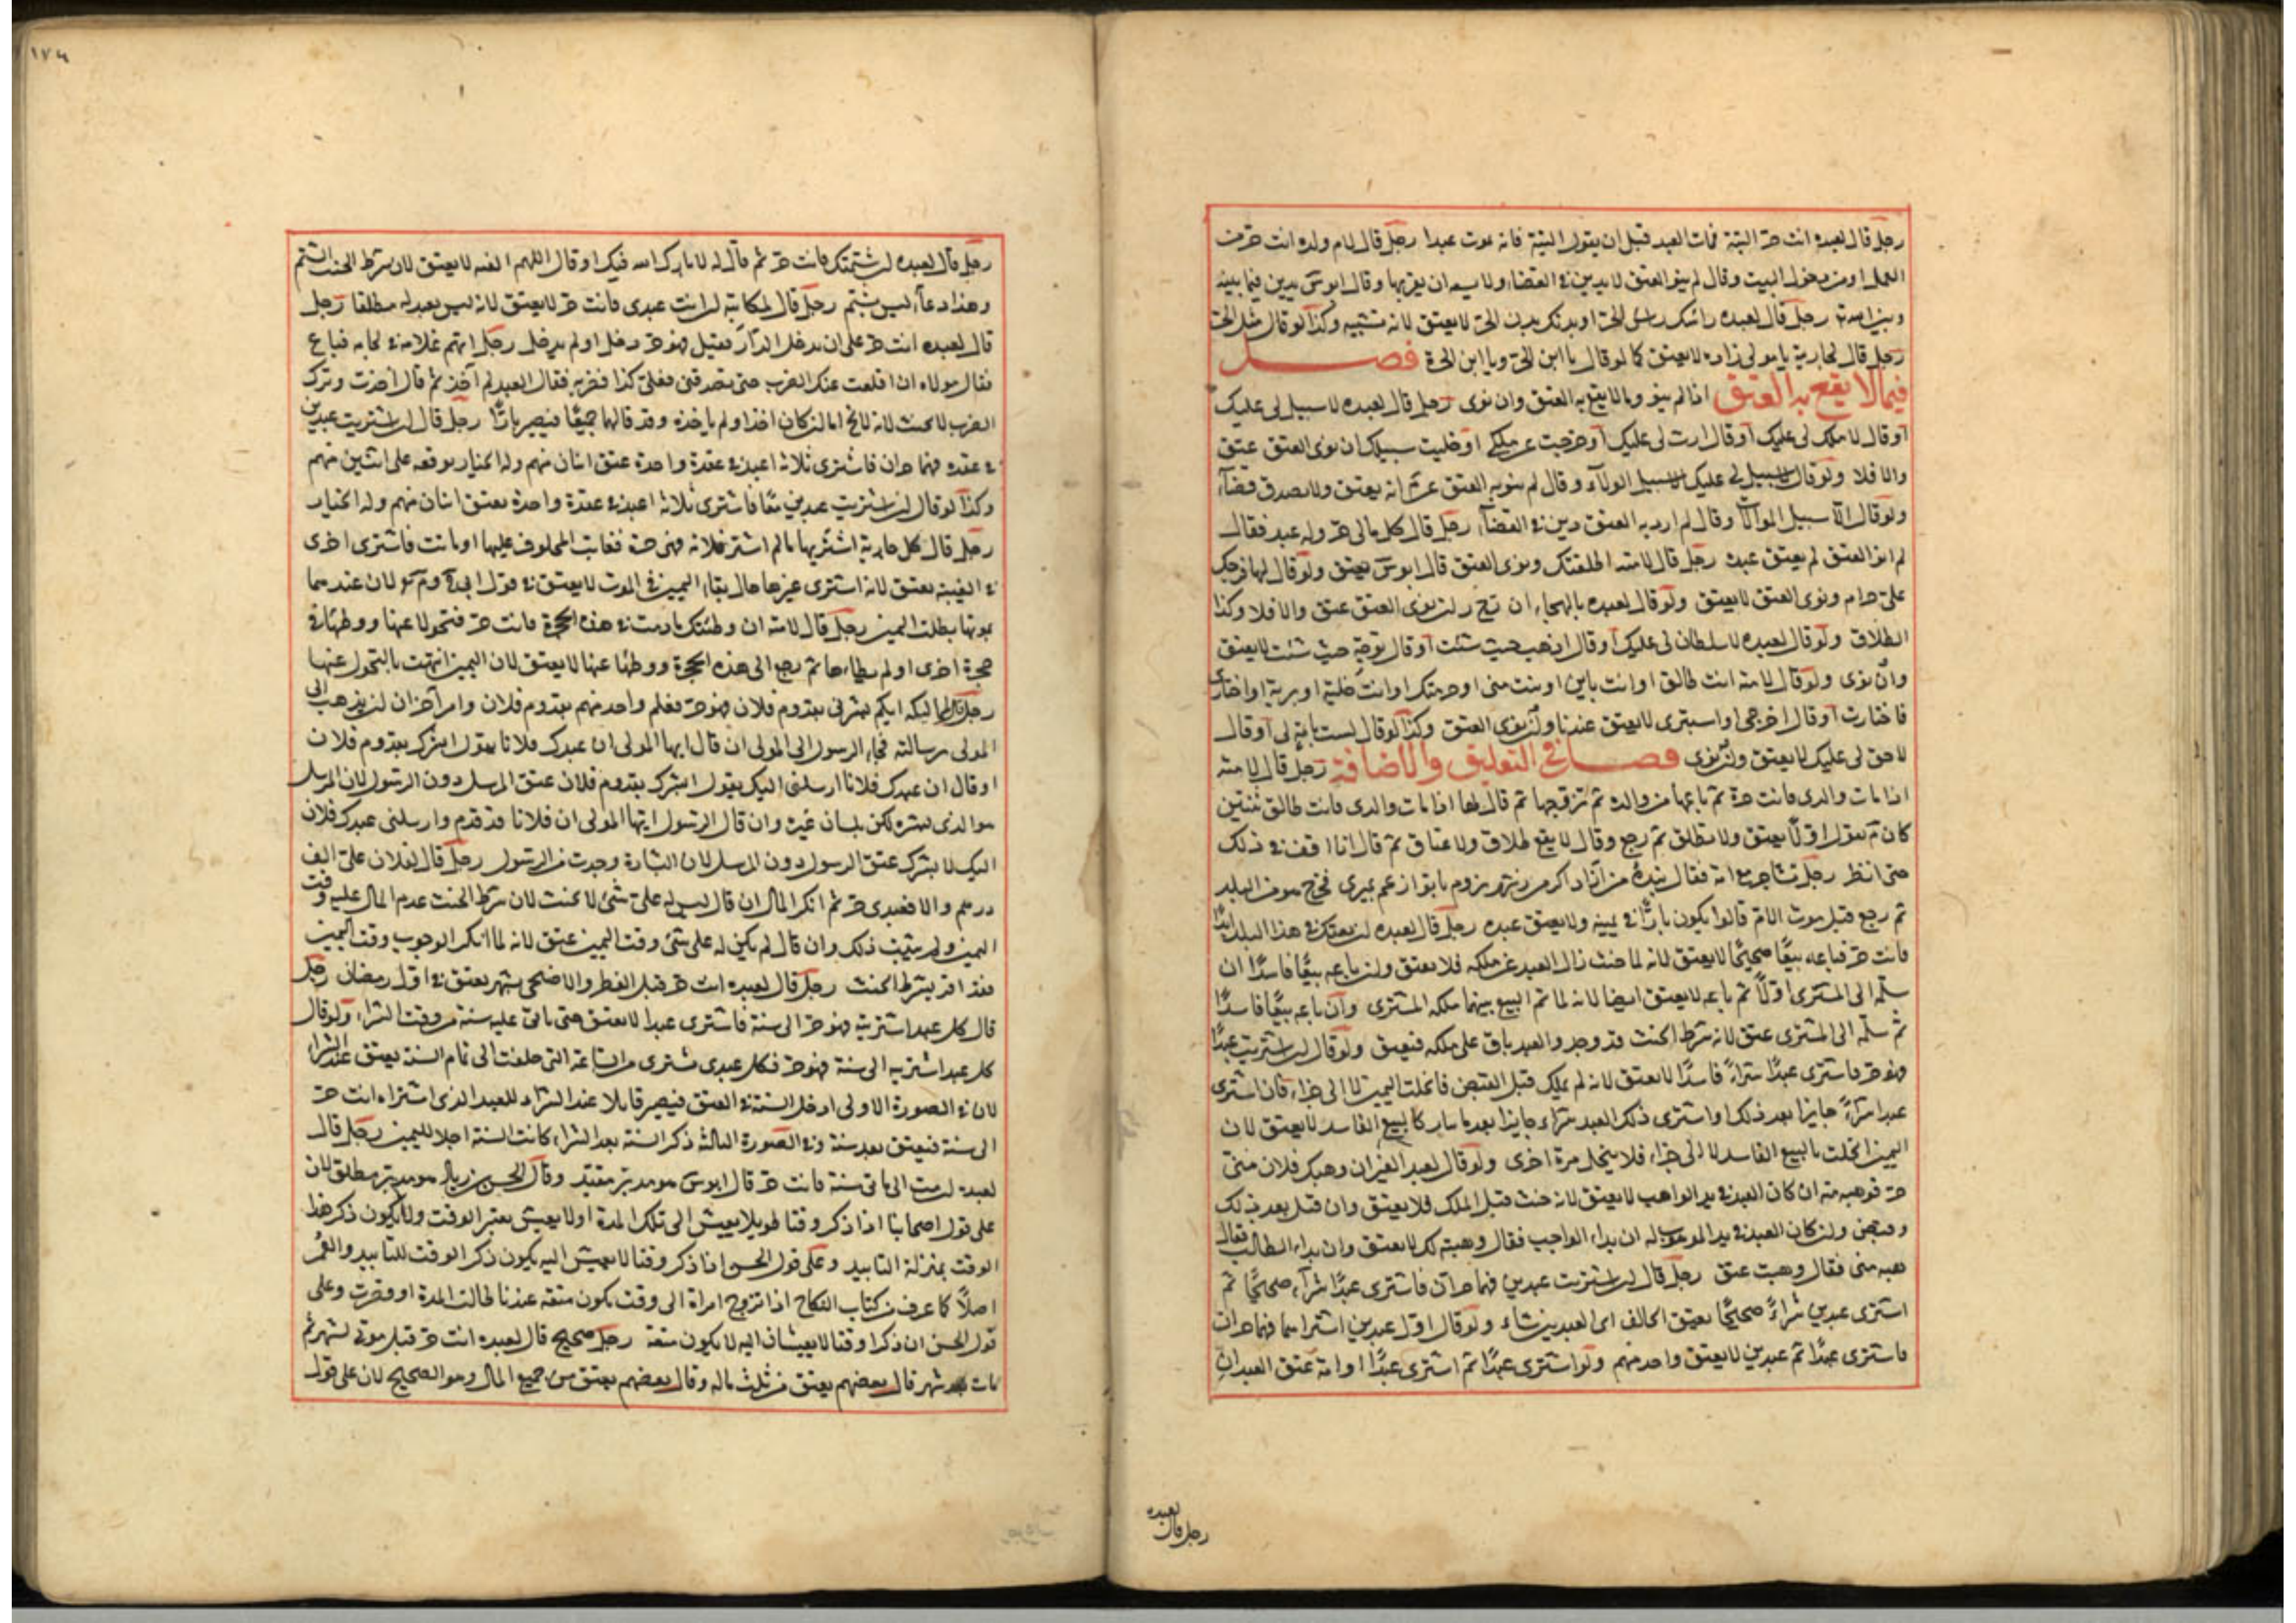 رجل قال لعبده انت حر البتة فمات العبد قبل ان يقول البتة فانه يموت عبدا رجل قال لام ولده انت حرة من
العمل او من دخول البيت وقال لم ينو العتق لا يدين في القضاء ولا يسعه ان يقربها وقال ابو س يدين فيما بينه
وبين الله تعالى رجل قال لعبده راسك راس الحر او بدنك بدن الحر لا يعتق لانه تشبيه وكذا لو قال مثل الحر
رجل قال لجارية يا مولى زاده لا يعتق كما لو قال يا ابن الحر ويا ابن الحرة فصل
فيما لا يقع به العتق اذا لم ينو وما لا يقع به العتق وان نوى رجل قال لعبده لا سبيل لي عليك
او قال لا ملك لي عليك او قال لا رق لي عليك او خرجت عن ملكي او خليت سبيلك ان نوى العتق عتق
والا فلا ولو قال لا سبيل لي عليك الا سبيل الولاء وقال لم ينو به العتق انه يعتق ولا يصدق قضاء
ولو قال الا سبيل الموالاة وقال لم ارد به العتق دين في القضاء رجل قال كل مالي حر وله عبد فقال
لم انو العتق لم يعتق عبده رجل قال لامته اطلقتك ونوى العتق قال ابو س يعتق ولو قال لها فرجك
علي حرام ونوى العتق لا يعتق ولو قال لعبده بالهجاء ان ت ح ر ان نوى العتق عتق والا فلا وكذا
الطلاق ولو قال لعبده لا سلطان لي عليك او قال اذهب حيث شئت او قال توجه حيث شئت لا يعتق
وان نوى ولو قال لامته انت طالق او انت باين او بنت مني او حرمتك او انت خلية او برية او اختاري
فاختارت او قال اخرجي او استبرئي لا يعتق عندنا وان نوى العتق وكذا لو قال لست بامة لي او قال
لا حق لي عليك لا يعتق وان نوى فصل في التعليق والاضافة رجل قال لامته
اذا مات والدي فانت حرة ثم باعها من والده ثم تزوجها ثم قال لها اذا مات والدي فانت طالق ثنتين
كان م يقول اولا يعتق ولا تطلق ثم رجع وقال لا يقع طلاق ولا عتاق ثم قال انا اقف في ذلك
حتى انظر رجل تشاجر مع امه فقال بنده من ازاد اكر من بزوم با تو از عم ميري فخرج هو من البلد
ثم رجع قبل موت الام قالوا يكون بارا في يمينه ولا يعتق عبده رجل قال لعبده ان بعتك في هذا البلد ابدا
فانت حر فباعه بيعا صحيحا لا يعتق لانه لما حنث زال العبد عن ملكه فلا يعتق وان باعه بيعا فاسدا ان
سلمه الى المشتري اولا ثم باعه لا يعتق ايضا لانه لما تم البيع بينهما ملكه المشتري وان باعه بيعا فاسدا
ثم سلمه الى المشتري عتق لانه شرط الحنث قد وجد والعبد باق على ملكه فيعتق ولو قال ان اشتريت عبدا
فهو حر فاشترى عبدا شراء فاسدا لا يعتق لانه لم يملك قبل القبض فانحلت اليمين لا الى جزاء فان اشترى
عبدا شراء جايزا بعد ذلك او اشترى ذلك العبد شراء جايزا بعده البيع الفاسد لا يعتق لان
اليمين انحلت بالبيع الفاسد لا الى جزاء فلا ينحل مرة اخرى ولو قال لعبد الغير ان وهبك فلان مني
حر فوهبه منه ان كان العبد في يد الواهب لا يعتق لانه حنث قبل الملك فلا يعتق وان قبل بعد ذلك
وقبض وان كان العبد في يد الموهوب له ان بداء الواهب فقال وهبته لك لا يعتق وان بداء الطالب فقال
هبه مني فقال وهبت عتق رجل قال ان اشتريت عبدين فهما حران فاشترى عبدا شراء صحيحا ثم
اشترى عبدين شراء صحيحا يعتق الحالف اي العبدين شاء ولو قال اول عبدين اشتراهما فهما حران
فاشترى عبدا ثم عبدين لا يعتق واحد منهم ولو اشترى عبدا ثم اشترى عبدا او امة عتق العبدان
لعبده
رجل قال
١٧٤
رجل قال لعبده ان شتمتك فانت حر ثم قال له لا بارك الله فيك او قال اللهم العنه لا يعتق لان شرط الحنث الشتم
وهذا دعاء ليس بشتم رجل قال لمكاتبه ان انت عبدي فانت حر لا يعتق لانه ليس بعبد له مطلقا رجل
قال لعبده انت حر على ان تدخل الدار فقبل فهو حر دخل او لم يدخل رجل اتهم غلامه في لجام فباع
فقال مولاه ان اقلعت عنك الضرب حتى تصدقني فعلي كذا فضربه فقال العبد لم آخذ ثم قال اخذت وترك
الضرب لا يحنث لانه لا يخ اما ان كان اخذ او لم ياخذه وقد قالهما جميعا فيصير بارا رجل قال ان اشتريت عبدين
في عقده فهما حران فاشترى ثلاثة اعبد في عقدة واحدة عتق اثنان منهم وله الخيار يوقعه على اثنين منهم
وكذا لو قال ان اشتريت عبدين معا فاشترى ثلاثة اعبد في عقدة واحدة يعتق اثنان منهم وله الخيار
رجل قال كل جارية اشتريها ما لم اشتر فلانة فهي حرة فغابت المحلوف عليها او ماتت فاشترى اخرى
في الغيبة يعتق لانه اشترى غيرها حال بقاء اليمين في الموت لا يعتق في قول ابي ح وم لان عندهما
بموتها بطلت اليمين رجل قال لامته ان وطئتك ما دمت في هذه الحجرة فانت حر فتحولا عنها ووطئها في
حجرة اخرى او لم يطاءها ثم رجع الى هذه الحجرة ووطئها عنها لا يعتق لان اليمين انتهت بالتحول عنها
رجل قال لمماليكه ايكم بشرني بقدوم فلان فهو حر فعلم واحد منهم بقدوم فلان وامر آخر ان يذهب الى
المولى برسالته فجاء الرسول الى المولى ان قال ايها المولى ان عبدك فلانا يقول ابشرك بقدوم فلان
او قال ان عبدك فلانا ارسلني اليك يقول ابشرك بقدوم فلان عتق المرسل دون الرسول لان المرسل
هو الذي بشره لكن بلسان غيره وان قال الرسول ايها المولى ان فلانا قد قدم وارسلني عبدك فلان
اليك لا بشرك عتق الرسول دون المرسل لان البشارة وجدت من الرسول رجل قال لفلان علي الف
درهم والا فعبدي حر ثم انكر المال ان قال ليس له علي شئ لا يحنث لان شرط الحنث عدم المال عليه وقت
اليمين ولم يثبت ذلك وان قال لم يكن له علي شئ وقت اليمين عتق لانه لما انكر الوجوب وقت اليمين
فقد اقر بشرط الحنث رجل قال لعبده انت حر قبل الفطر والاضحى بشهر يعتق في اول رمضان رجل
قال كل عبد اشتريته فهو حر الى سنة فاشترى عبدا لا يعتق حتى ياتي عليه سنة من وقت الشراء ولو قال
كل عبد اشتريه الى سنة فهو حر فكل عبدي شترى من الساعة التي حلفت الى تمام السنة يعتق عند الشراء
لان في الصورة الاولى ادخل السنة في العتق فيصير قايلا عند الشراء للعبد الذي اشتراه انت حر
الى سنة فيعتق بعد سنة وفي الصورة الثالثة ذكر السنة بعد الشراء كانت السنة اجلا لليمين رجل قال
لعبده ان مت الى مائتي سنة فانت حر قال ابو س هو مدبر مقيد وقال الحسن بن زياد هو مدبر مطلق لان
على قول اصحابنا اذا ذكر وقتا طويلا يعيش الى تلك المدة او لا يعيش يعتبر الوقت ولا يكون ذكر هذا
الوقت بمنزلة التابيد وعلى قول الحسن اذا ذكر وقتا لا يعيش اليه يكون ذكر الوقت للتابيد والعمر
اصلا كما عرف في كتاب النكاح اذا تزوج امراة الى وقت يكون متعة عندنا طالت المدة او قصرت وعلى
قول الحسن ان ذكرا وقتا لا يعيشان اليه لا يكون متعة رجل صحيح قال لعبده انت حر قبل موتي بشهر ثم
مات بعد شهر قال بعضهم يعتق من ثلث ماله وقال بعضهم يعتق من جميع المال وهو الصحيح لان على قول